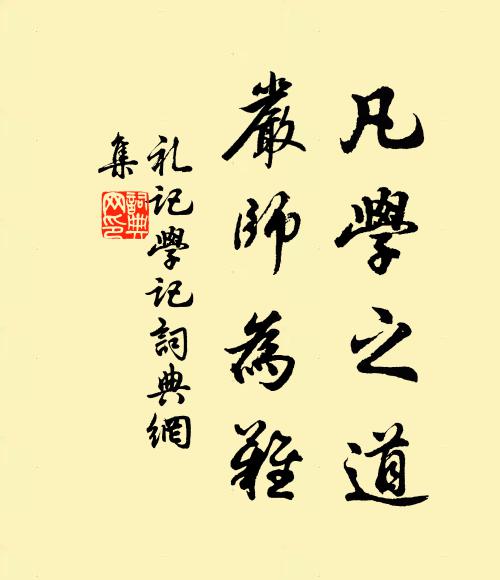 凡學之道
嚴師為難
礼記學記詞典網
集
詞典網印